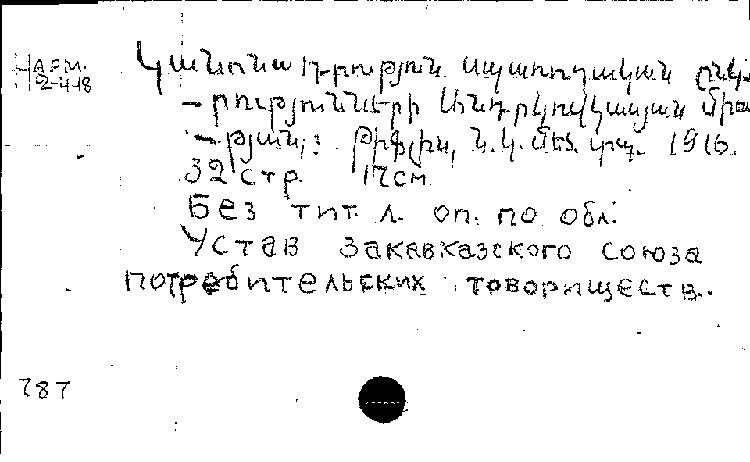 НАРМ.
2-4-18
Կանոնադրություն սպառողական ընկե
– րությունների Անդրկովկասյան միա
– թյան,: Թիֆլիս, Ն.Կ. մեծ. կոչ. 1916.
32 стр. 17см.
Без тит. л. оп. по обл.
Устав Закавказского союза
потребительских товариществ.
787